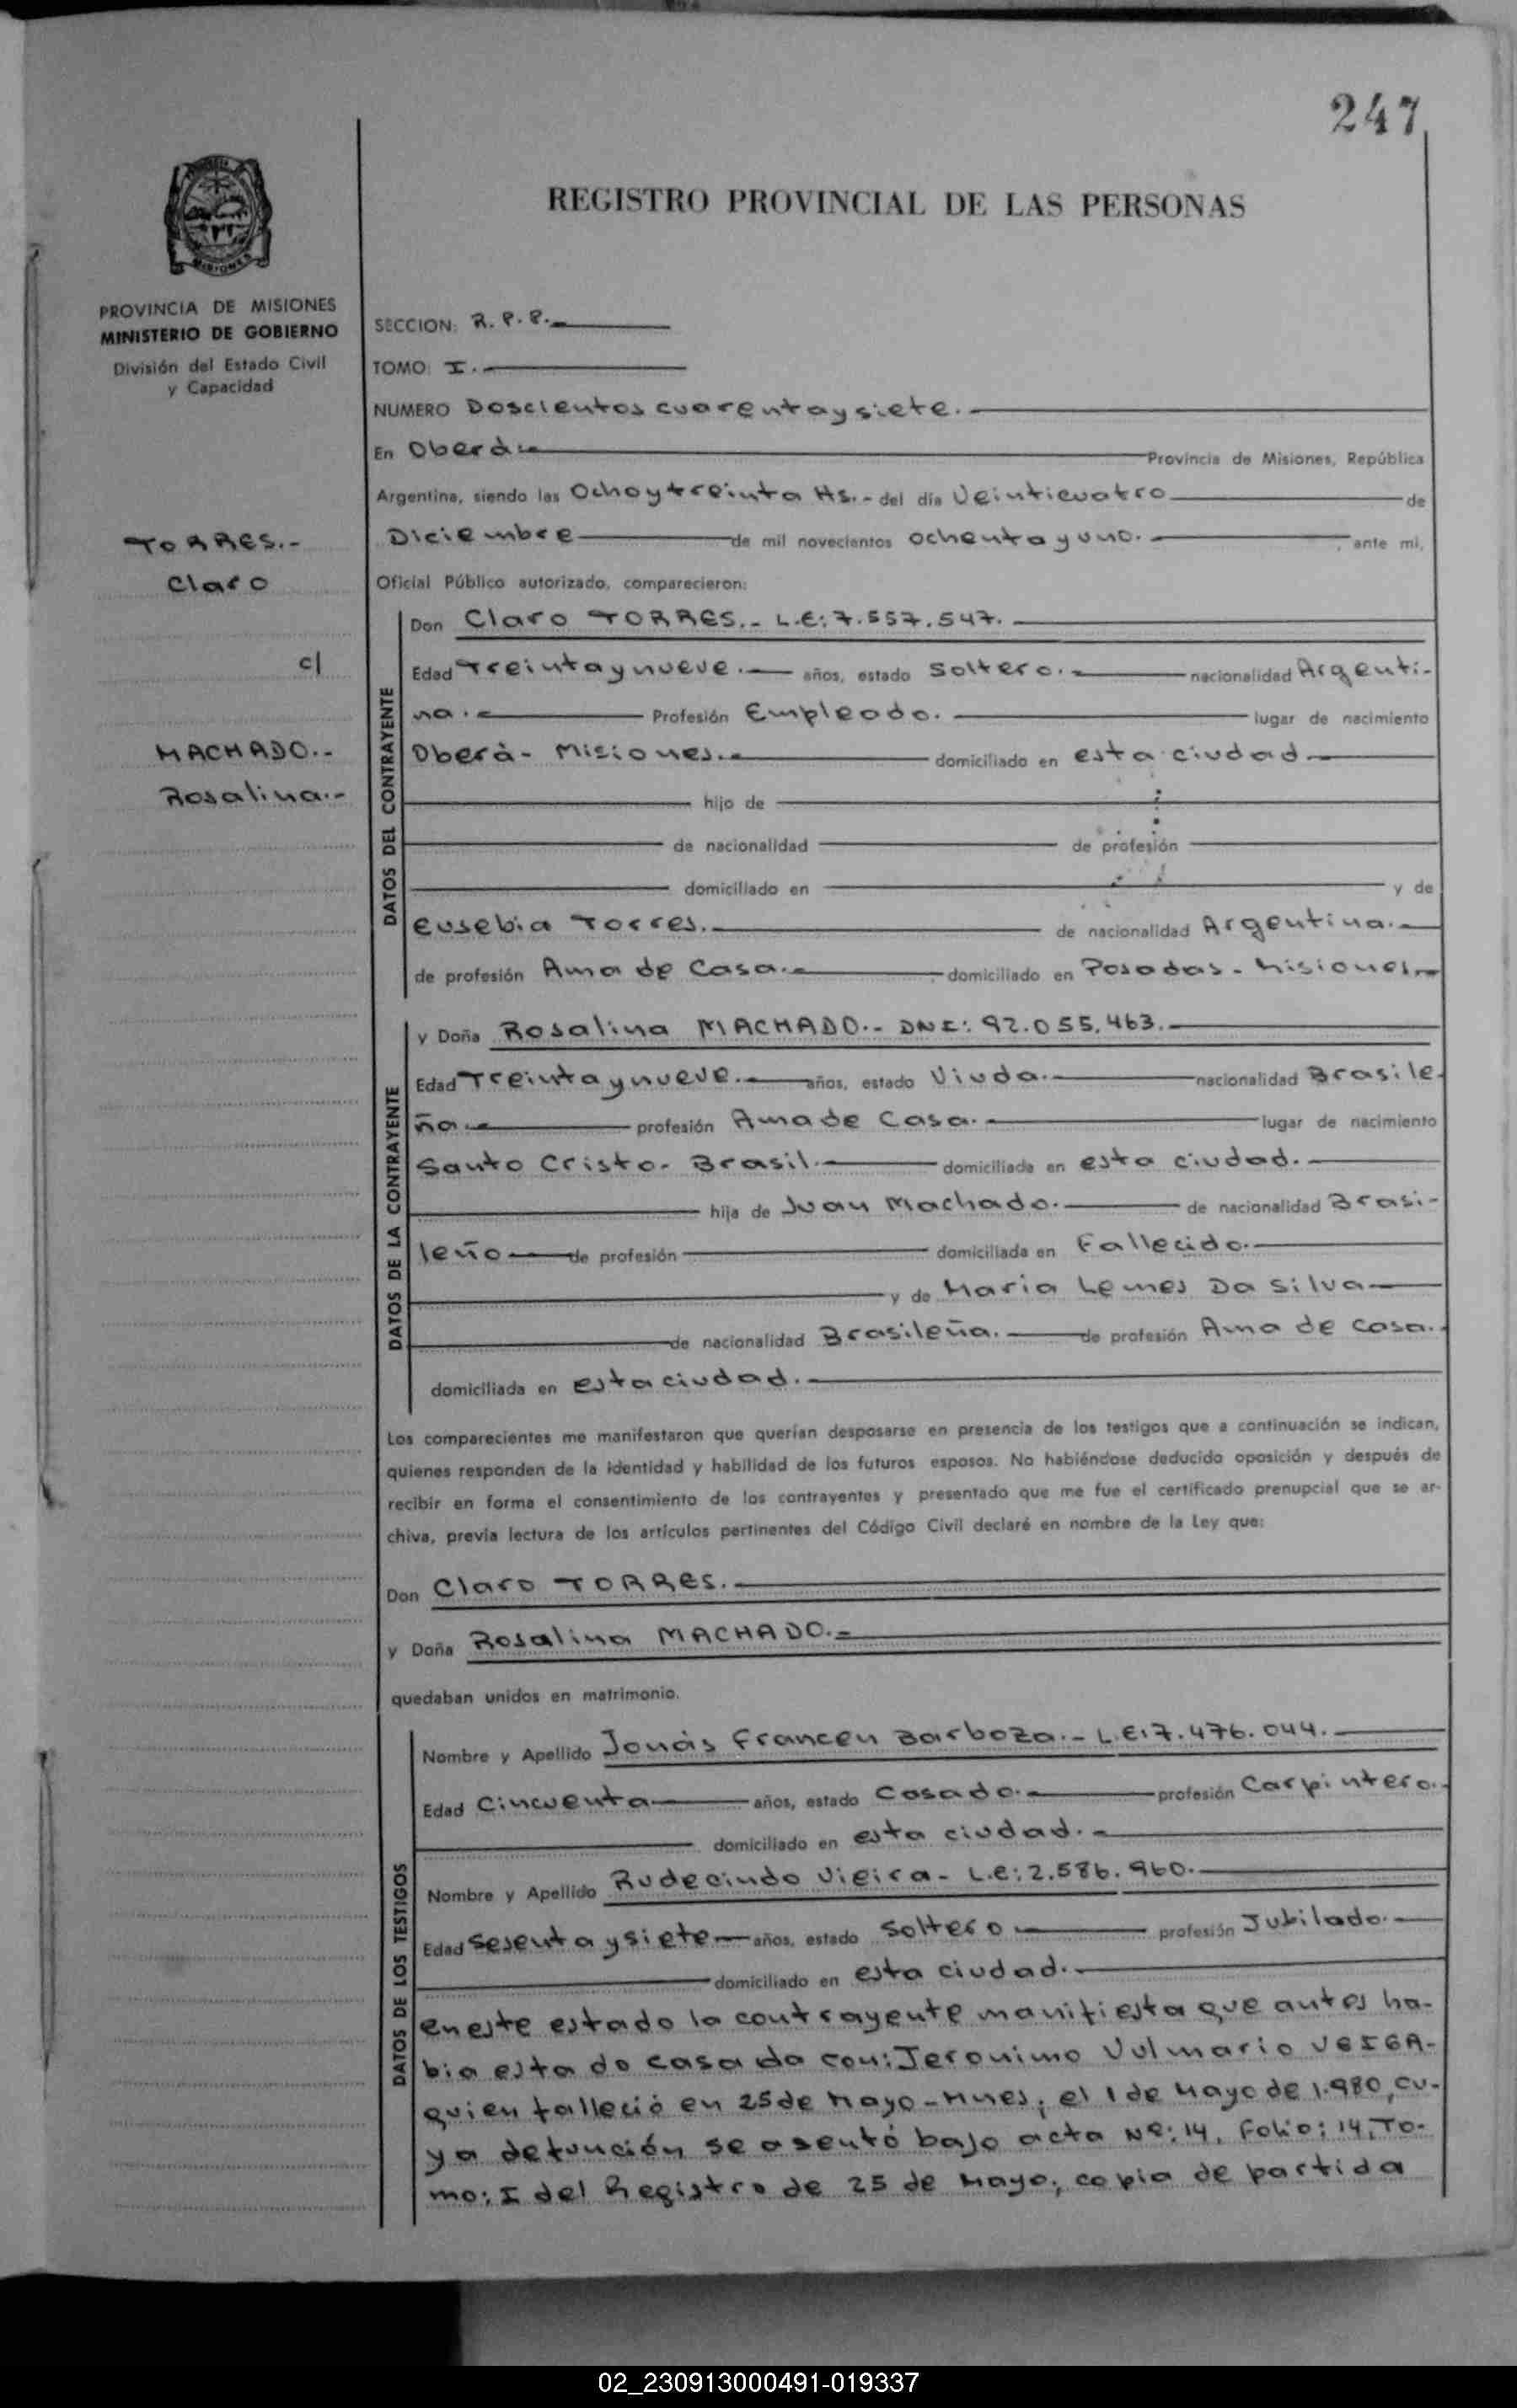 247
REGISTRO PROVINCIAL DE LAS PERSONAS
MISIONES
PROVINCIA DE MISIONES
MINISTERIO DE GOBIERNO
División del Estado Civil
y Capacidad
SECCION: R. P. P.
TOMO: I.
NUMERO Doscientos cuarentaysiete.
En Oberá
Provincia de Misiones, República
Argentina, siendo las Ochoytreinta Hs.- del día Veinticuatro de
Diciembre de mil novecientos ochentayuno. , ante mi,
Oficial Público autorizado, comparecieron:
TORRES.-
Claro
c/
MACHADO.-
Rosalina.-
DATOS DEL CONTRAYENTE
Don Claro TORRES.- L.E: 7.557.547.
Edad Treintaynueve. años, estado Soltero. nacionalidad Argenti-
na. Profesión Empleado. lugar de nacimiento
Oberà- Misiones. domiciliado en esta ciudad
hijo de
de nacionalidad de profesión
domiciliado en y de
Eusebia Torres. de nacionalidad Argentina.
de profesión Ama de Casa. domiciliado en Posadas - Misiones
DATOS DE LA CONTRAYENTE
y Doña Rosalina MACHADO.- DNI: 92.055.463.
Edad Treintaynueve. años, estado Viuda. nacionalidad Brasile-
ña. profesión Ama de Casa. lugar de nacimiento
Santo Cristo- Brasil. domiciliada en esta ciudad.
hija de Juan Machado. de nacionalidad Brasi-
leño de profesión domiciliada en Fallecido.
y de Maria Lemes Da Silva
de nacionalidad Brasileña. de profesión Ama de casa.
domiciliada en esta ciudad.
Los comparecientes me manifestaron que querían desposarse en presencia de los testigos que a continuación se indican,
quienes responden de la identidad y habilidad de los futuros esposos. No habiéndose deducido oposición y después de
recibir en forma el consentimiento de los contrayentes y presentado que me fue el certificado prenupcial que se ar-
chiva, previa lectura de los artículos pertinentes del Código Civil declaré en nombre de la Ley que:
Don Claro TORRES.
y Doña Rosalina MACHADO.-
quedaban unidos en matrimonio.
DATOS DE LOS TESTIGOS
Nombre y Apellido Jonás Francen Barboza.- L.E: 7.476.044.
Edad Cincuenta años, estado Casado. profesión Carpintero.
domiciliado en esta ciudad.
Nombre y Apellido Rudecindo Vieira- L.e: 2.586.960.
Edad Sesentaysiete años, estado Soltero profesión Jubilado.
domiciliado en esta ciudad.
en este estado la contrayente manifiesta que antes ha-
bia estado casada con: Jeronimo Vulmario VEIGA-
quien falleció en 25 de Mayo - Mnes; el 1 de Mayo de 1.980, cu-
ya defunción, se asentó bajo acta Nº: 14, Folio: 14, To-
mo: I del Registro de 25 de Mayo; copia de partida
02_230913000491-019337